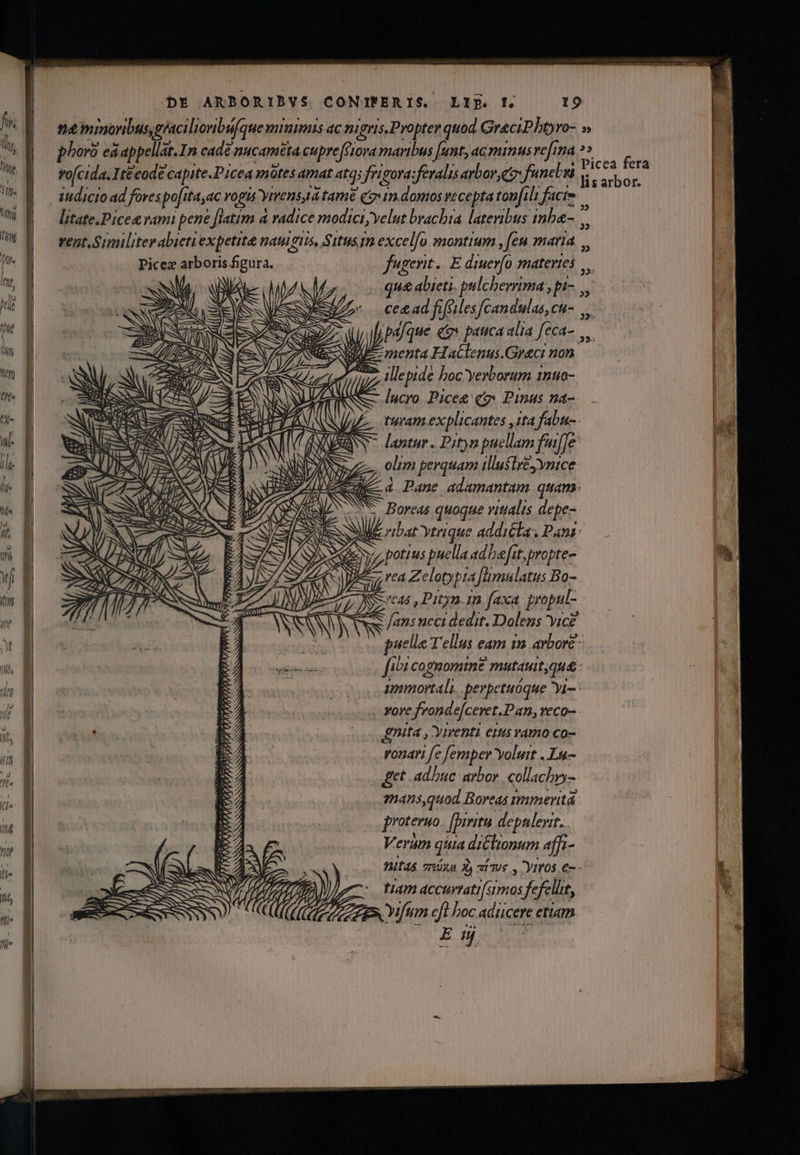 DE ARBORIBVS CONIFERIS. LIB. I. 19
næ minoribus, gracilioribusque minimis ac nigris. Propter quod Græci Phtyro- »
phorõ eã appellãt. In eadẽ nucamẽta cupressiora maribus sunt, ac minus resina »
roscida. Itẽ eodẽ capite. Picea mõtes amat atq; frigora: feralis arbor, & funebri
Picea fera
lis arbor.
iudicio ad fores posita, ac rogis virens, iã tamẽ & in domos recepta tonsili faci-
litate. Piceæ rami penè statim à radice modici, velut brachia lateribus inhæ- „
rent. Similiter abieti expetitæ nauigiis. Situs in excelso montium, seu maria „
Piceæ arboris figura.
fugerit. E diuerso materies „
quæ abieti. pulcherrima, pi- „
ceæ ad fissiles scandulas, cu- „
pasque & pauca alia seca- „
menta Hactenus. Græci non
illepidè hoc verborum inuo-
lucro Piceæ & Pinus na-
turam explicantes, ita fabu-
lantur. Pityn puellam fuisse
olim perquam illustrẽ, vnicè
à Pane adamantam quam
Boreas quoque vitialis depe-
ribat vtrique addicta. Pani
potius puella adhæsit, propte-
rea Zelotypia stimulatus Bo-
reas, Pityn in saxa propul-
sans neci dedit. Dolens vicẽ
puellæ Tellus eam in arborẽ
sibi cognominẽ mutauit, quæ
immortali perpetuóque vi-
rore frondesceret. Pan, reco-
gnita, virenti eius ramo co-
ronari se semper voluit. Lu-
get adhuc arbor collachry-
mans, quod Boreas immeritã
proteruo spiritu depulerit.
Verùm quia dictionum affi-
nitas πεύκη ϗ πίτυς, viros e-
tiam accuratissimos fefellit,
visum est hoc adiicere etiam
E iij